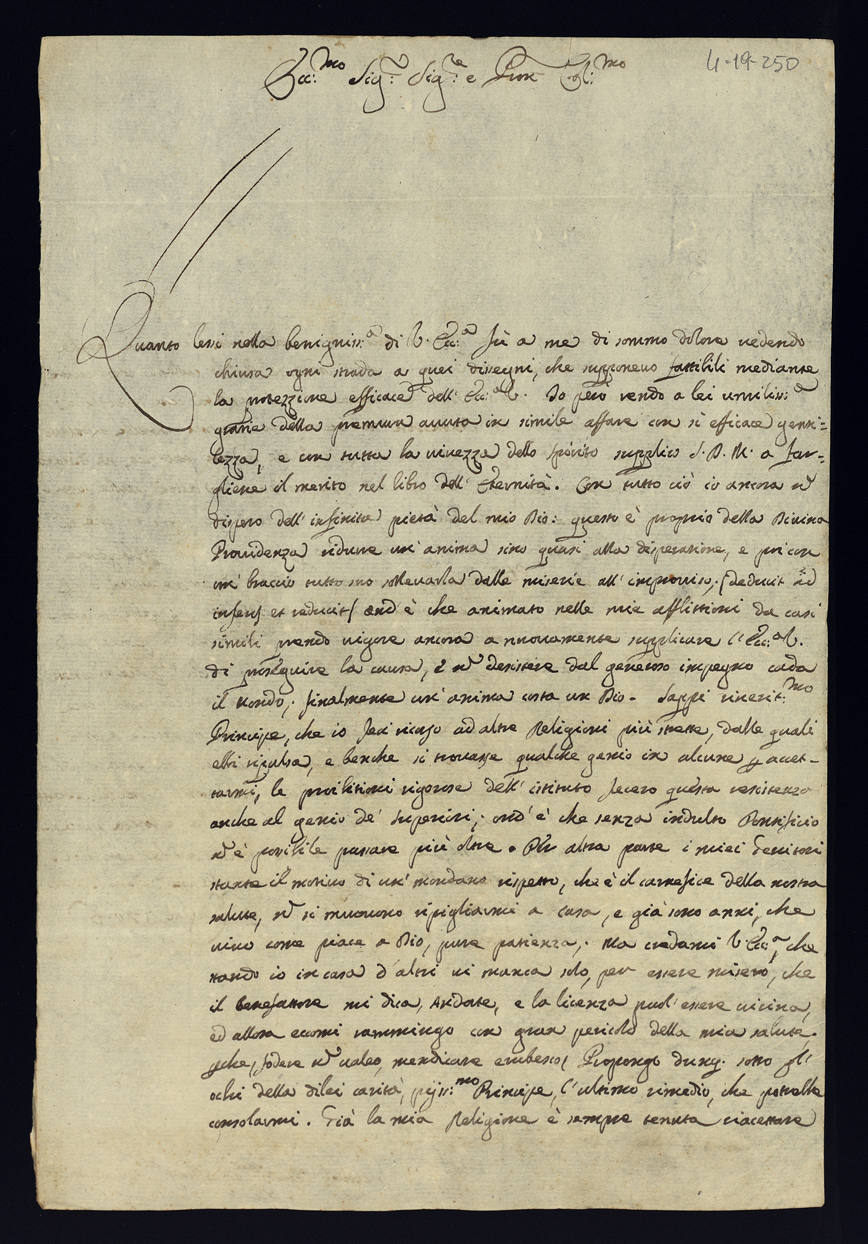 4-19-250
Ecc.mo Sig.r Sig.re e Pron Col.mo
Quanto lessi nella benigniss.a di V. Ecc.a fù a me di sommo dolore vedendo
chiusa ogni strada a quei disegni, che supponevo fattibili mediante
la protezzione efficace dell' Ecc.a V. Io però rendo a lei umiliss.e
grazie della premura avuta in simile affare con sì efficace genti=
lezza, e con tutta la vivezza dello spirito supplico S. D. M. a far=
gliene il merito nel libro dell' Eternità. Con tutto ciò io ancora nō
dispero dell' infinita pietà del mio Dio: questo è proprio della Divina
Providenza ridurre un' anima sino quasi alla disperazione, e poi con
un' braccio tutto suo sollevarla dalle miserie all' improviso; (deducit ad
inferos et reducit) ond' è che animato nelle mie afflittioni da casi
simili prendo vigore ancora a nuovamente supplicare l' Ecc.a V.
di proseguire la causa, e nō desistere dal generoso impegno cada
il Mondo; finalmente un' anima costa un Dio. Sappi riverit.mo
Principe, che io feci ricorso ad altre Religioni più strette, dalle quali
ebbi ripulsa, e benche si trovasse qualche genio in alcune p accet-
tarmi, le proibitioni rigorose dell' istituto fecero questa resistenza
anche al genio de' Superiori; ond' è che senza indulto Pontificio
nō è possibile passare più oltre. Per altra parte i miei Genitori
stante il motivo di un' mondano rispetto, che è il carnefice della nostra
salute, nō si muovono ripigliarmi a casa, e già sono anni, che
vivo come piace a Dio, pure patienza; Ma credami V. Ecc.a, che
stando io in casa d' altri vi manca solo, per essere misero, che
il benefattore mi dica, Andate, e la licenza puol' essere vicina,
ed allora eccomi rammingo con gran pericolo della mia salute,
pche, fodere nō valeo, mendicare erubesco; Propongo dunq. sotto gl'
ochi della dilei carità, pijss.mo Principe, l' ultimo rimedio, che potrebbe
consolarmi. Già la mia Religione è sempre tenuta riaccettare